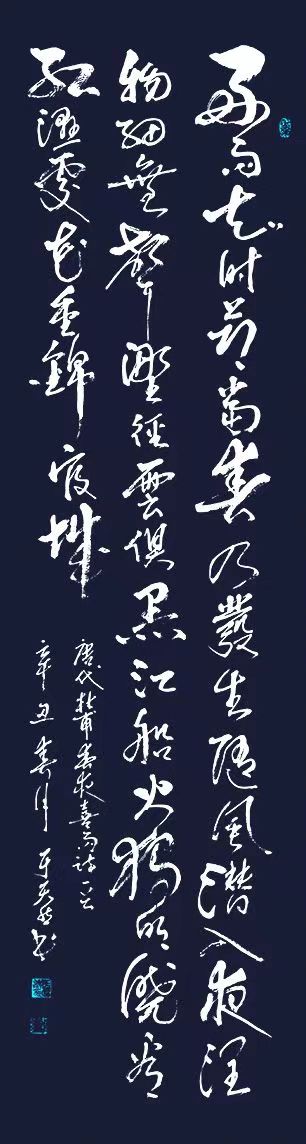 好雨知时节當春乃發生随風潜入夜润
物細無聲野徑雲俱黑江船火独明曉看
紅湿處花重錦官城
唐代杜甫春夜喜雨诗一首
辛丑春月